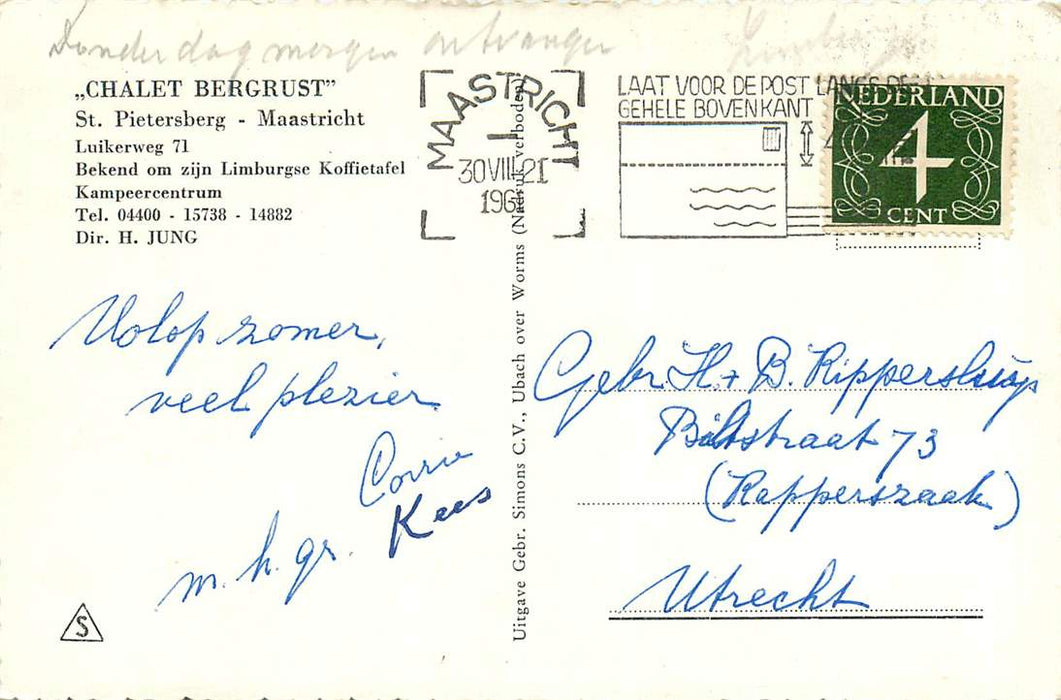 Donderdagmorgen ontvangen
„CHALET BERGRUST”
St. Pietersberg - Maastricht
Luikerweg 71
Bekend om zijn Limburgse Koffietafel
Kampeercentrum
Tel. 04400 - 15738 - 14882
Dir. H. JUNG
MAASTRICHT
1
30 VIII 21
196
LAAT VOOR DE POST LANGS DE
GEHELE BOVENKANT
4
NEDERLAND
4
CENT
Volop zomer,
veel plezier.
Corrie
Kees
m. h. gr.
S
Uitgave Gebr. Simons C.V., Ubach over Worms (Nadruk verboden)
Gebr. H. + B. Rippersluijs
Biltstraat 73
(Kapperszaak)
Utrecht